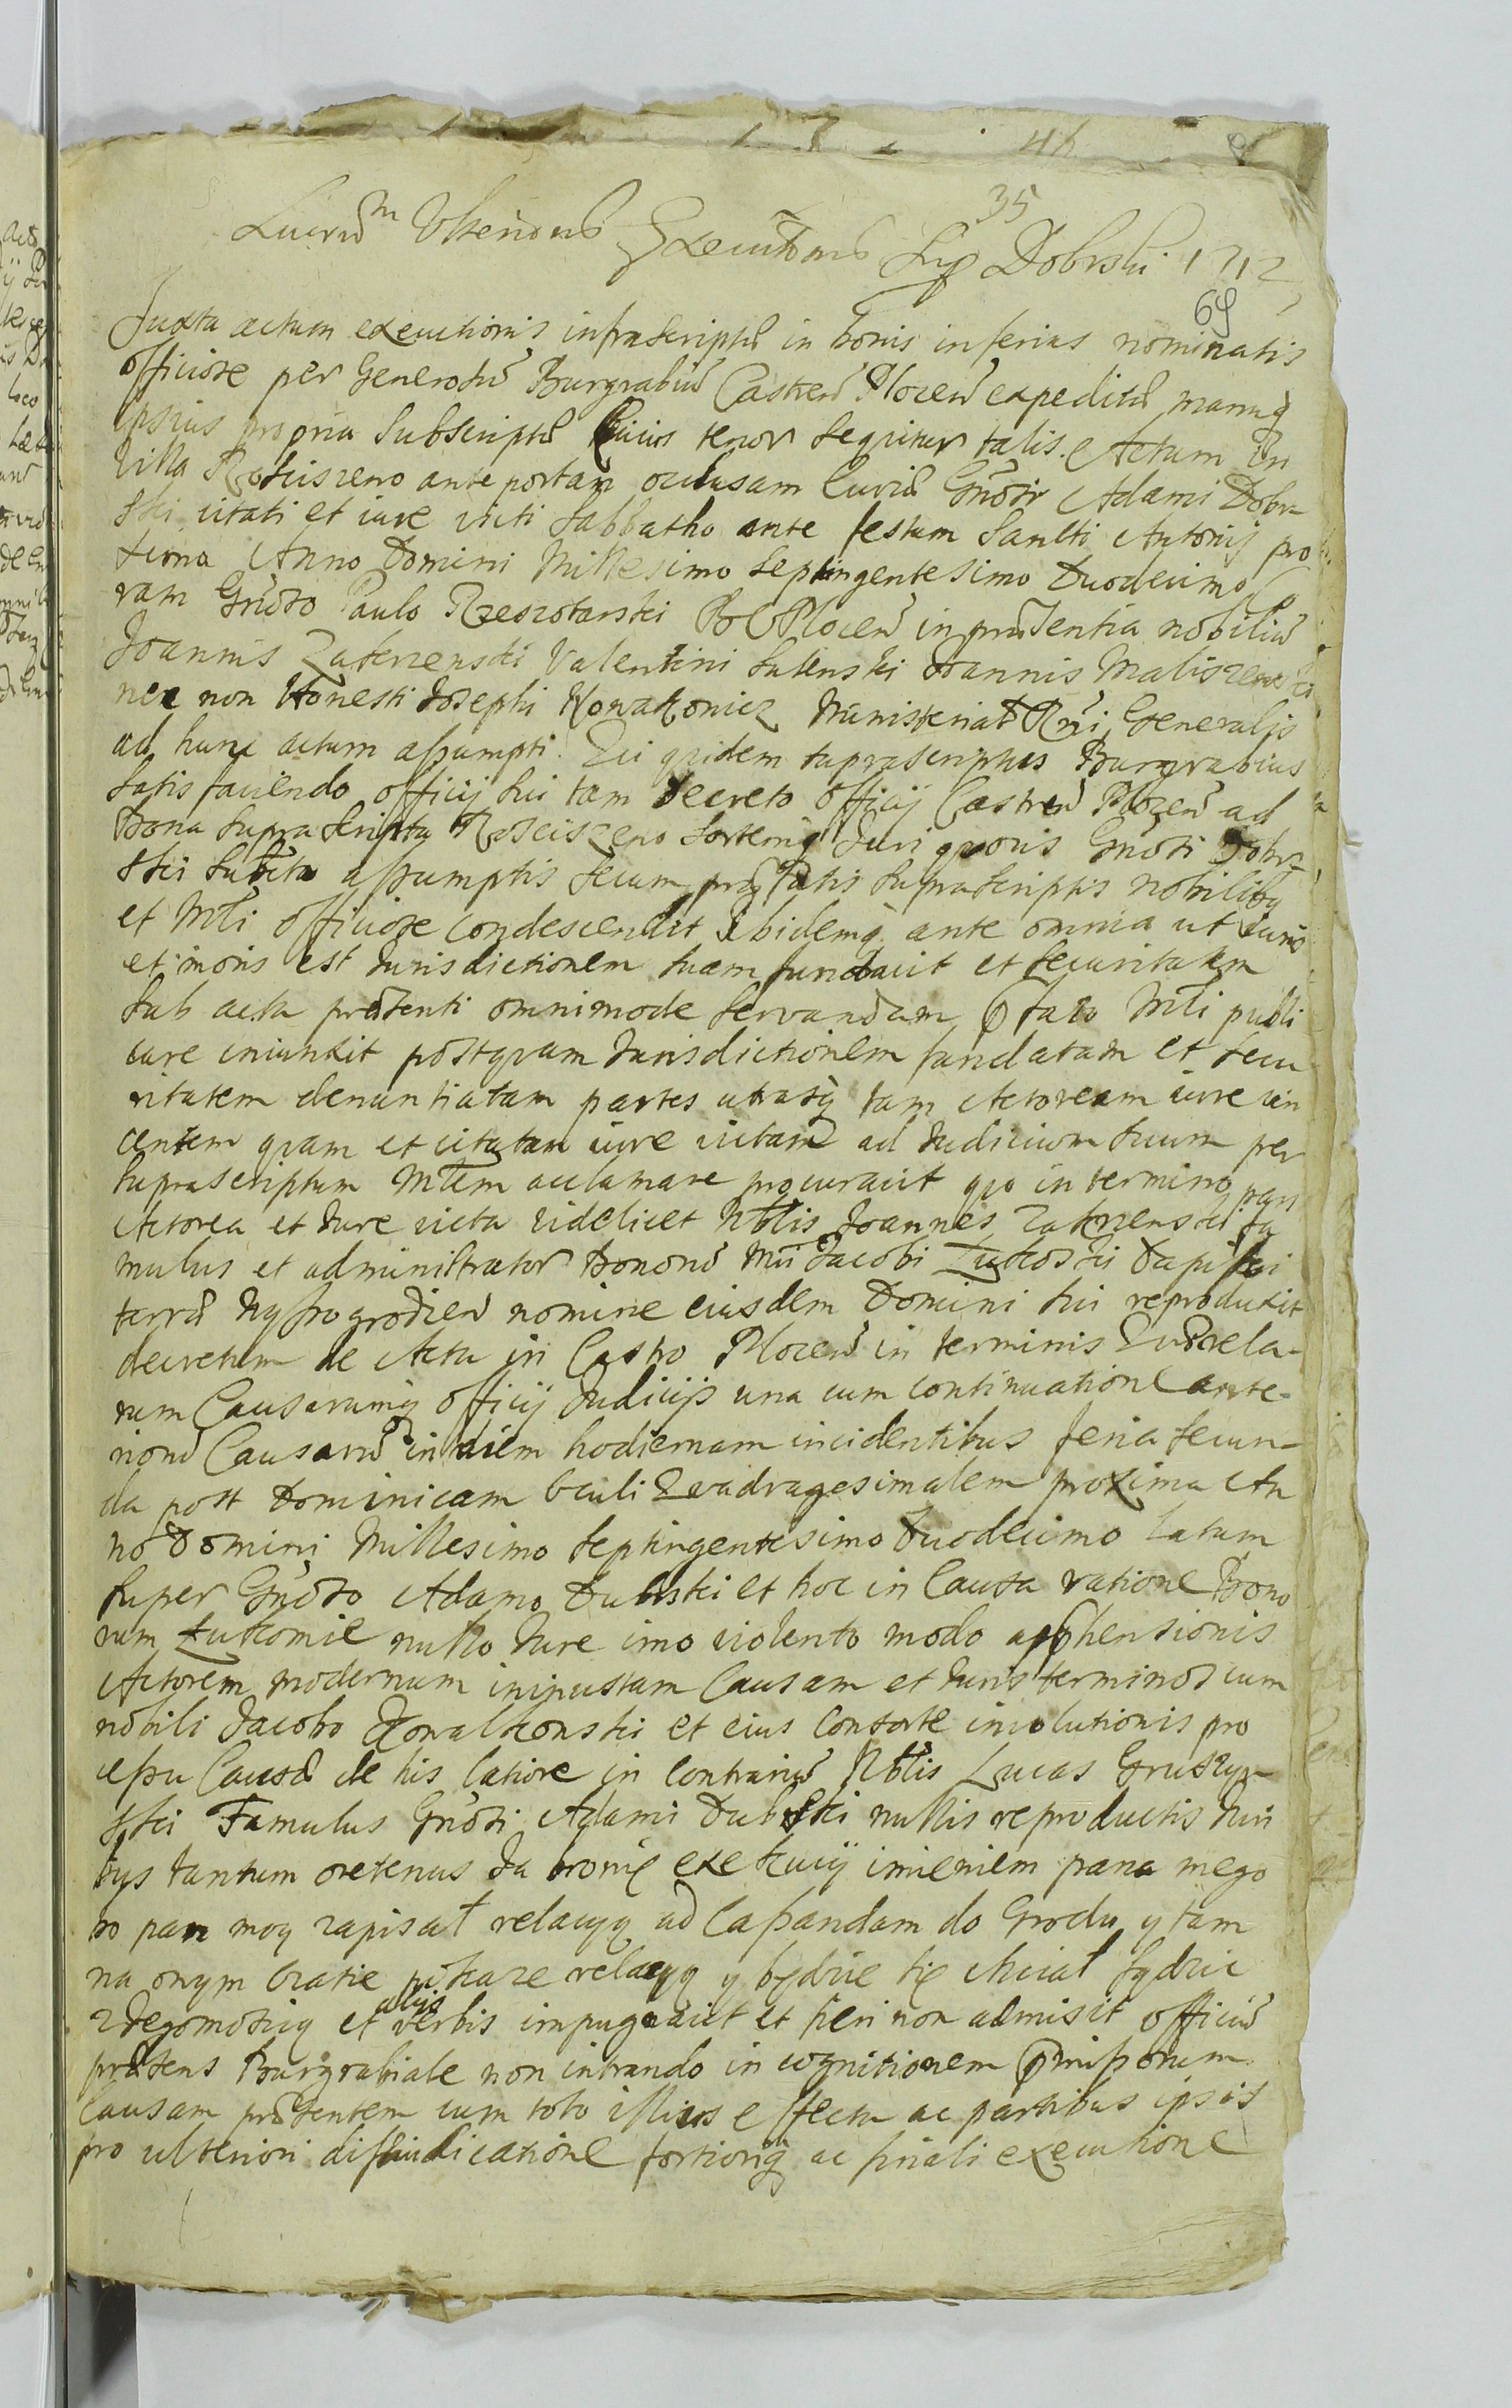 35
Ulterioris Executionis Sup Dobrski 1712
69
Juxta actum executionis infrascriptū in bonis inferius nominatis
officiose per Generosū Burgrabiū Castreñ Plocen̄ expeditū manuq
ipsius propria subscriptū Cuius tenor sequitur talis. Actum in
villa Rosciszewo ante portam occlusam Curiæ Gñosi Adami Dobr-
ski citati et iure victi Sabbatho ante festum Sancti Antonij pro
xima Anno Domini Millesimo Septingentesimo Duodecimo Co
ram Gñoso Paulo Rzeszotarski BC Plocen̄ in pñtentia nobiliū
Joannis Zakrzenski Valentini Sutenski Joannis Maliszewski
nec non Honesti Josephi Nowakowicz Ministerialis Rñi Generalis
ad hunc actum assumpti. Qui quidem supra scriptus Burgrabius
satis faciendo officij sui tam decreto officij Castreñ Plocen̄ ad
Bona supra scripta Rosciszewo sortemq Juri quovis Gñosi Dobr-
ski subita assumptis secum præfatis suprascriptis nobilibus
et Mlī officiose condescendit Ibidemq ante omnia ut Juris
et moris est Jurisdictionem suam fundavit et securitatem
sub actu præsenti omnimode servandam Mlī publi
care iniunxit postquam Jurisdictionem fundatam et secu
ritatem denuntiatam partes utrasq tam Actoream iure vin
centem quam et citatam iure victam ad Judicium suum per
supra scriptum Mlem acclamare procuravit quo in termino pars
Actorea et Jure victa videlicet Nblis Joannes Zakrzenski fa
mulus et administrator Bonorū Mñi Jacobi Zukoski Dapiferi
terræ Wyssogrodien̄ nomine eiusdem Domini sui reproduxit
decretum de Actu in Castro Plocen̄ in terminis Querela-
rum Causarumq officij Judicijs una cum continuatione ante-
riorū Causarū in diem hodiernam incidentibus feria secun-
da post Dominicam Oculi Quadragesimalem proxima An
no Domini Millesimo Septingentesimo Duodecimo latum
super Gñoso Adamo Dubrski et hoc in Causa ratione Bono
rum Zukowie nullo Jure imo violento modo apphensionis
Actorem modernum in iniustam Causam et Juris terminos cum
nobili Jacobo Kowalkonski et eius consorte involutionis pro
cessu Causæ de his latiore in contrariū Nblis Lucas Gruszyn-
ski Famulus Gñosi Adami Dubrski nullis reproductis Juri
bus tantum oretenus Ja bronię exekucij imieniem pana mego
bo pan moy zapisał relacyą ad Cassandam do Grodu y tam
na onym Gratie pokaze relacyą y będzie się chciał sądzic
z Jegomoscią et alijs verbis impugnavit et fieri non admisit officiū
præsens Burgrabiale non intrando in cognitionem pmissorum
Causam præsentem cum toto illius effectu ac partibus ipsis
pro ulteriori disiudicatione fortioriq ac finali executione